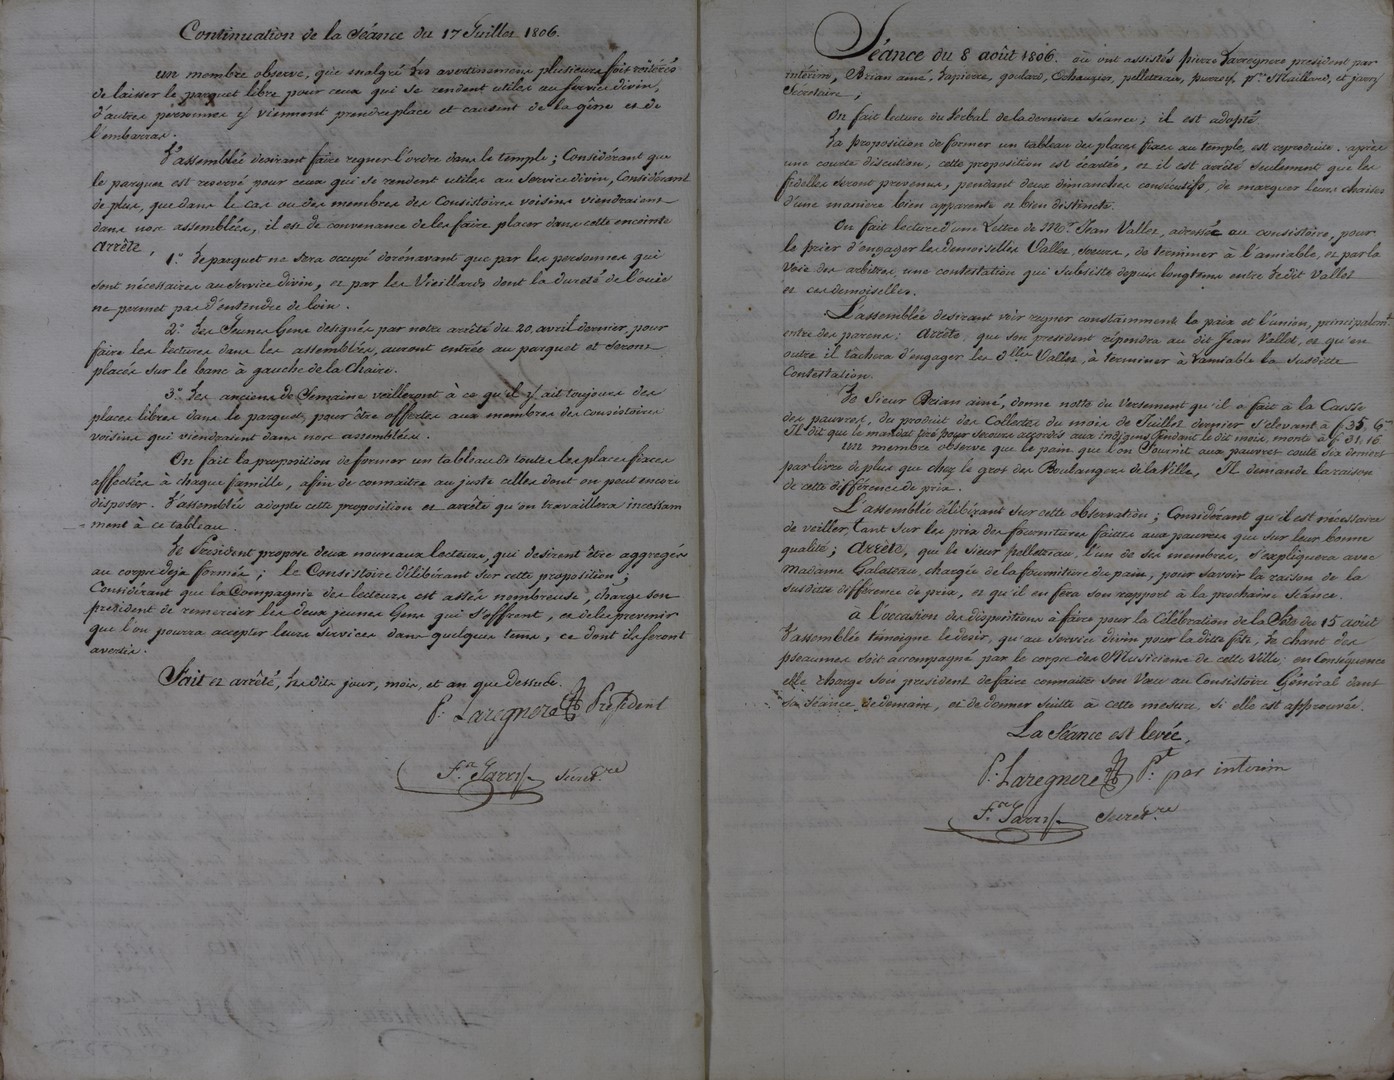 Continuation de la Séance du 17 Juillet 1806.
un membre observe, que malgré les avertissemens plusieurs fois réitérés
de laisser le parquet libre pour ceux qui se rendent utiles au service divin,
d'autres personnes y viennent prendre place et causent de la gêne et de
l'embarras.
L'assemblée desirant faire regner l'ordre dans le temple; Considérant que
le parquet est reservé pour ceux qui se rendent utiles au service divin, Considérant
de plus, que dans le cas ou des membres des Consistoires voisins viendraient
dans nos assemblées, il est de convenance de les faire placer dans cette enceinte
arrête,
1.° Le parquet ne sera occupé dorénavant que par les personnes qui
sont nécessaires au service divin, et par les Vieillards dont la dureté de l'ouie
ne permet pas d'entendre de loin.
2.° Les Jeunes Gens designés par notre arrêté du 20 avril dernier, pour
faire les lectures dans les assemblées, auront entrée au parquet et seront
placés sur le banc à gauche de la Chaire.
3.° Les anciens de Semaine veilleront à ce qu'il y ait toujours des
places libres dans le parquet, pour être offertes aux membres des consistoires
voisins qui viendraient dans nos assemblées.
On fait la proposition de former un tableau de toutes les places fixes
affectées à chaque famille, afin de connaitre au juste celles dont on peut encore
disposer. L'assemblée adopte cette proposition et arrête qu'on travaillera incessam
=ment à ce tableau.
Le President propose deux nouveaux lecteurs, qui desirent être aggregés
au corps deja formés; le Consistoire délibérant sur cette proposition;
Considérant que la Compagnie des lecteurs est assés nombreuse, charge son
president de remercier les deux jeunes Gens qui s'offrent, et de les prevenir
que l'on pourra accepter leurs services dans quelque tems, ce dont ils seront
avertis.
Fait et arrêté, Les dits jour, mois, et an que dessus.
P. Laregnere President
F.ois Jarry Secret.re
Séance du 8 août 1806. où ont assistés pierre Larregnere president par
intérim, Brian ainé, Lapierre, goulard, pelletreau, p.re Maillard, et jarry
Secretaire;
On fait lecture du Verbal de la derniere séance; il est adopté
La proposition de former un tableau des places fixes au temple, est reproduite. après
une courte discution, cette proposition est écartée, et il est arrêté seulement que les
fidelles seront prevenus, pendant deux dimanches consécutifs, de marquer leurs chaises
d'une manière bien apparente et bien distincte.
On fait lecture d'une Lettre de M.r Jean Vallet, adressée au consistoire, pour
le prier d'engager les demoiselles Vallet, soeurs, de terminer à l'amiable, et par la
voie des arbitres, une contestation qui subsiste depuis longtems entre ledit Vallet
et ces demoiselles.
L'assemblée desirant voir regner constamment la paix et l'union, principalem.t
entre des parens; arrête, que son president répondra au dit Jean Vallet, et qu'en
outre il tâchera d'engager les d.lles Vallet, à terminer à l'amiable la susditte
Contestation.
Le Sieur Brian ainé, donne notte du versement qu'il a fait à la Caisse
des pauvres, du produit des Collectes du mois de Juillet dernier s'elevant à f. 35, 6
Il dit que le mandat tiré pour secours accordés aux indigens pendant le dit mois, monte à f. 31, 16
un membre observe que le pain que l'on fournit aux pauvres coute six deniers
par livre de plus que chez le gros des Boulangers de la Ville, Il demande la raison
de cette différence de prix.
L'assemblée délibérant sur cette observation; Considérant qu'il est nécessaire
de veiller, tant sur les prix des fournitures faittes aux pauvres que sur leur bonne
qualité; arrête, que le sieur pelletreau, l'un de ses membres, s'expliquera avec
Madame Galateau, chargée de la fourniture du pain, pour savoir la raison de la
susditte différence de prix, et qu'il en fera son rapport à la prochaine Séance.
à l'occasion des dispositions à faire pour la Célébration de la Fête du 15 août
L'assemblée témoigne le desir, qu'au service divin pour la ditte fête, le chant des
pseaumes soit accompagné par le corps des Musiciens de cette Ville: en Conséquence
elle charge son president de faire connaitre son Vœu au Consistoire Général dans
sa séance de demain, et de donner suitte à cette mesure, si elle est approuvée.
La Séance est levée,
P. Laregnere P.t par interim
F.ois Jarry Secret.re